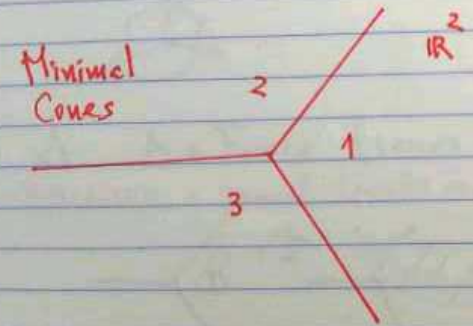 Minimal
Cones
2
ℝ²
1
3